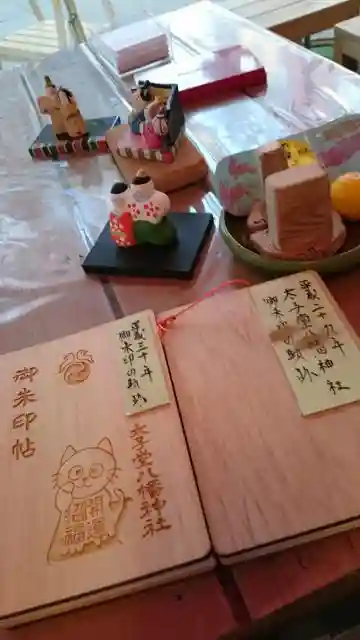 御朱印帖
平成三十年
御朱印の軌跡
太子堂八幡神社
開運
招福
平成二十九年
太子堂八幡神社
御朱印の軌跡